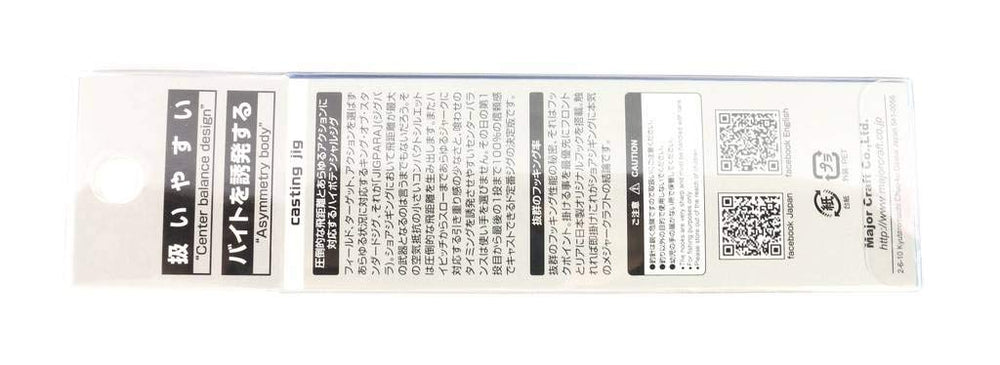 扱いやすい
"Center balance design"
バイトを誘発する
"Asymmetry body"
casting jig
圧倒的な飛距離とあらゆるアクションに
対応するハイポテンシャルジグ
フィールド、ターゲット、アクションを選ばず
あらゆる状況に対応するキング・オブ・スタ
ンダードジグ、それが「JIGPARA」(ジグパ
ラ)。ショアジギングにおいて飛距離が最大
の武器となるのは言うまでもないだろう。そ
の空気抵抗の小さいコンパクトシルエット
は圧倒的な飛距離を生み出します。またハ
イピッチからスローまであらゆるジャークに
対応する引き重り感の少なさと、喰わせの
タイミングを誘発させやすいセンターバラ
ンスは使い手を選びません。その日の第1
投目から最後の1投まで100%の信頼感
でキャストできるド定番ジグの決定版です。
抜群のフッキング率
抜群のフッキング性能の秘密、それはフッ
クポイント。掛ける事を最優先にフロント
とリアに日本製オリジナルフックを搭載。触
れれば即掛け!これがショアジギングに本気
のメジャークラフトの結論です。
ご注意 ⚠ CAUTION
facebook Japan
facebook English
紙
台紙
プラ
外装:PET
Major Craft Co.,Ltd.
http://www.majorcraft.co.jp